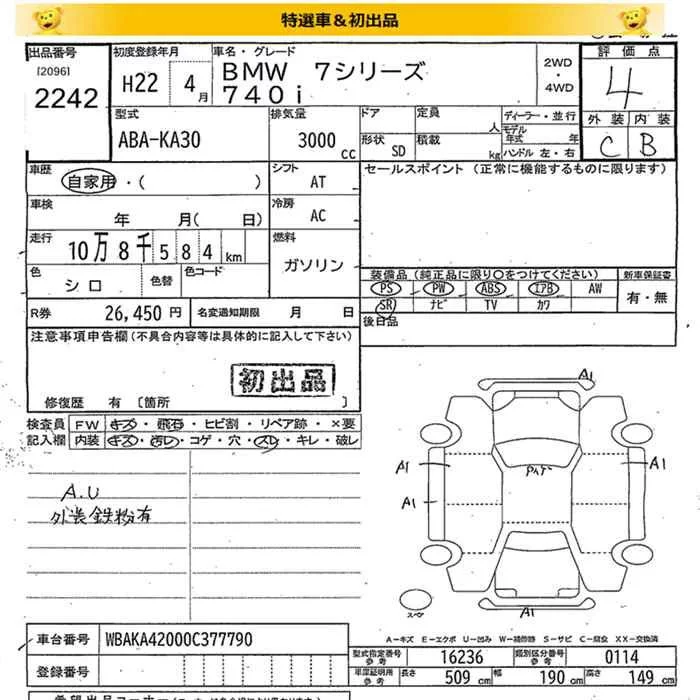 特選車＆初出品
出品番号
[2096]
2242
初度登録年月
H22 4月
車名・グレード
BMW 7シリーズ
740i
2WD
・
4WD
評価点
4
外装 内装
C B
型式
ABA-KA30
排気量
3000 cc
ドア
形状 SD
定員 人
積載 kg
ディーラー・並行
モデル年式 年
ハンドル 左・右
車歴
自家用・( )
シフト
AT
セールスポイント (正常に機能するものに限ります)
車検
年 月( 日)
冷房
AC
走行
10万8千584km
燃料
ガソリン
色
シロ
色替
色コード
装備品 (純正品に限り○をつけてください)
新車保証書
PS PW ABS エアB AW
有・無
SR ナビ TV カワ
後日品
R券 26,450円
名変通知期限 月 日
注意事項申告欄 (不具合内容等は具体的に記入して下さい)
初出品
修復歴 有 〔箇所 〕
検査員
記入欄
FW キズ・飛石・ヒビ割・リペア跡・×要
内装 キズ・汚レ・コゲ・穴・スレ・キレ・破レ
A.U
外装鉄粉有
A1
A1
A1
A1
A1
スペア
A－キズ E－エクボ U－凹み W－補修跡 S－サビ C－腐食 XX－交換済
車台番号 WBAKA42000C377790
登録番号
型式指定番号
参考
16236
類別区分番号
参考
0114
車庫証明用
参考
長さ 509 cm 幅 190 cm 高さ 149 cm